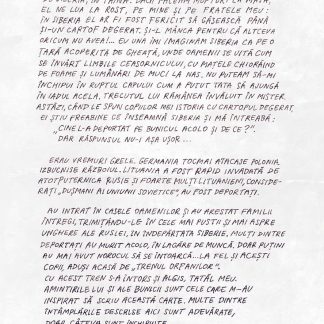 EL NE LUA LA ROST, PE MINE ȘI PE FRATELE MEU:
„ÎN SIBERIA EL AR FI FOST FERICIT SĂ GĂSEASCĂ PÂNĂ
ȘI-UN CARTOF DEGERAT. ȘI-L MÂNCA PENTRU CĂ ALTCEVA
ORICUM NU AVEA!... EU UNA ÎMI IMAGINAM SIBERIA CA PE O
ȚARĂ ACOPERITĂ DE GHEAȚĂ, UNDE OAMENII SE UITĂ CUM
SE ÎNVÂRT LIMBILE CEASORNICULUI, CU MAȚELE CHIORĂIND
DE FOAME ȘI LUMÂNĂRI DE MUCI LA NAS. NU PUTEAM SĂ-MI
ÎNCHIPUI ÎN RUPTUL CAPULUI CUM A PUTUT TATA SĂ AJUNGĂ
ÎN IADUL ACELA, TRECUTUL LUI RĂMÂNEA ÎNVĂLUIT ÎN MISTER.
ASTĂZI, CÂND LE SPUN COPIILOR MEI ISTORIA CU CARTOFUL DEGERAT,
EI ȘTIU PREABINE CE ÎNSEAMNĂ SIBERIA ȘI MĂ ÎNTREABĂ:
„CINE L-A DEPORTAT PE BUNICUL ACOLO ȘI DE CE?".
DAR RĂSPUNSUL NU-I AȘA UȘOR...
ERAU VREMURI GRELE. GERMANIA TOCMAI ATACASE POLONIA,
IZBUCNISE RĂZBOIUL. LITUANIA A FOST RAPID INVADATĂ DE
ATOTPUTERNICA RUSIE ȘI FOARTE MULȚI LITUANIENI, CONSIDE-
RAȚI „DUȘMANI AI UNIUNII SOVIETICE", AU FOST DEPORTAȚI.
AU INTRAT ÎN CASELE OAMENILOR ȘI AU ARESTAT FAMILII
ÎNTREGI, TRIMIȚÂNDU-LE ÎN CELE MAI PUSTII ȘI MAI ASPRE
UNGHERE ALE RUSIEI, ÎN ÎNDEPĂRTATA SIBERIE. MULȚI DINTRE
DEPORTAȚI AU MURIT ACOLO, ÎN LAGĂRE DE MUNCĂ. DOAR PUȚINI
AU MAI AVUT NOROCUL SĂ SE ÎNTOARCĂ... LA FEL ȘI ACEȘTI
COPII, ADUȘI ACASĂ DE „TRENUL ORFANILOR".
CU ACEST TREN S-A ÎNTORS ȘI ALGIS, TATĂL MEU.
AMINTIRILE LUI ȘI ALE BUNICII SUNT CELE CARE M-AU
INSPIRAT SĂ SCRIU ACEASTĂ CARTE. MULTE DINTRE
ÎNTÂMPLĂRILE DESCRISE AICI SUNT ADEVĂRATE,
DOAR CÂTEVA SUNT ÎNCHIPUITE.